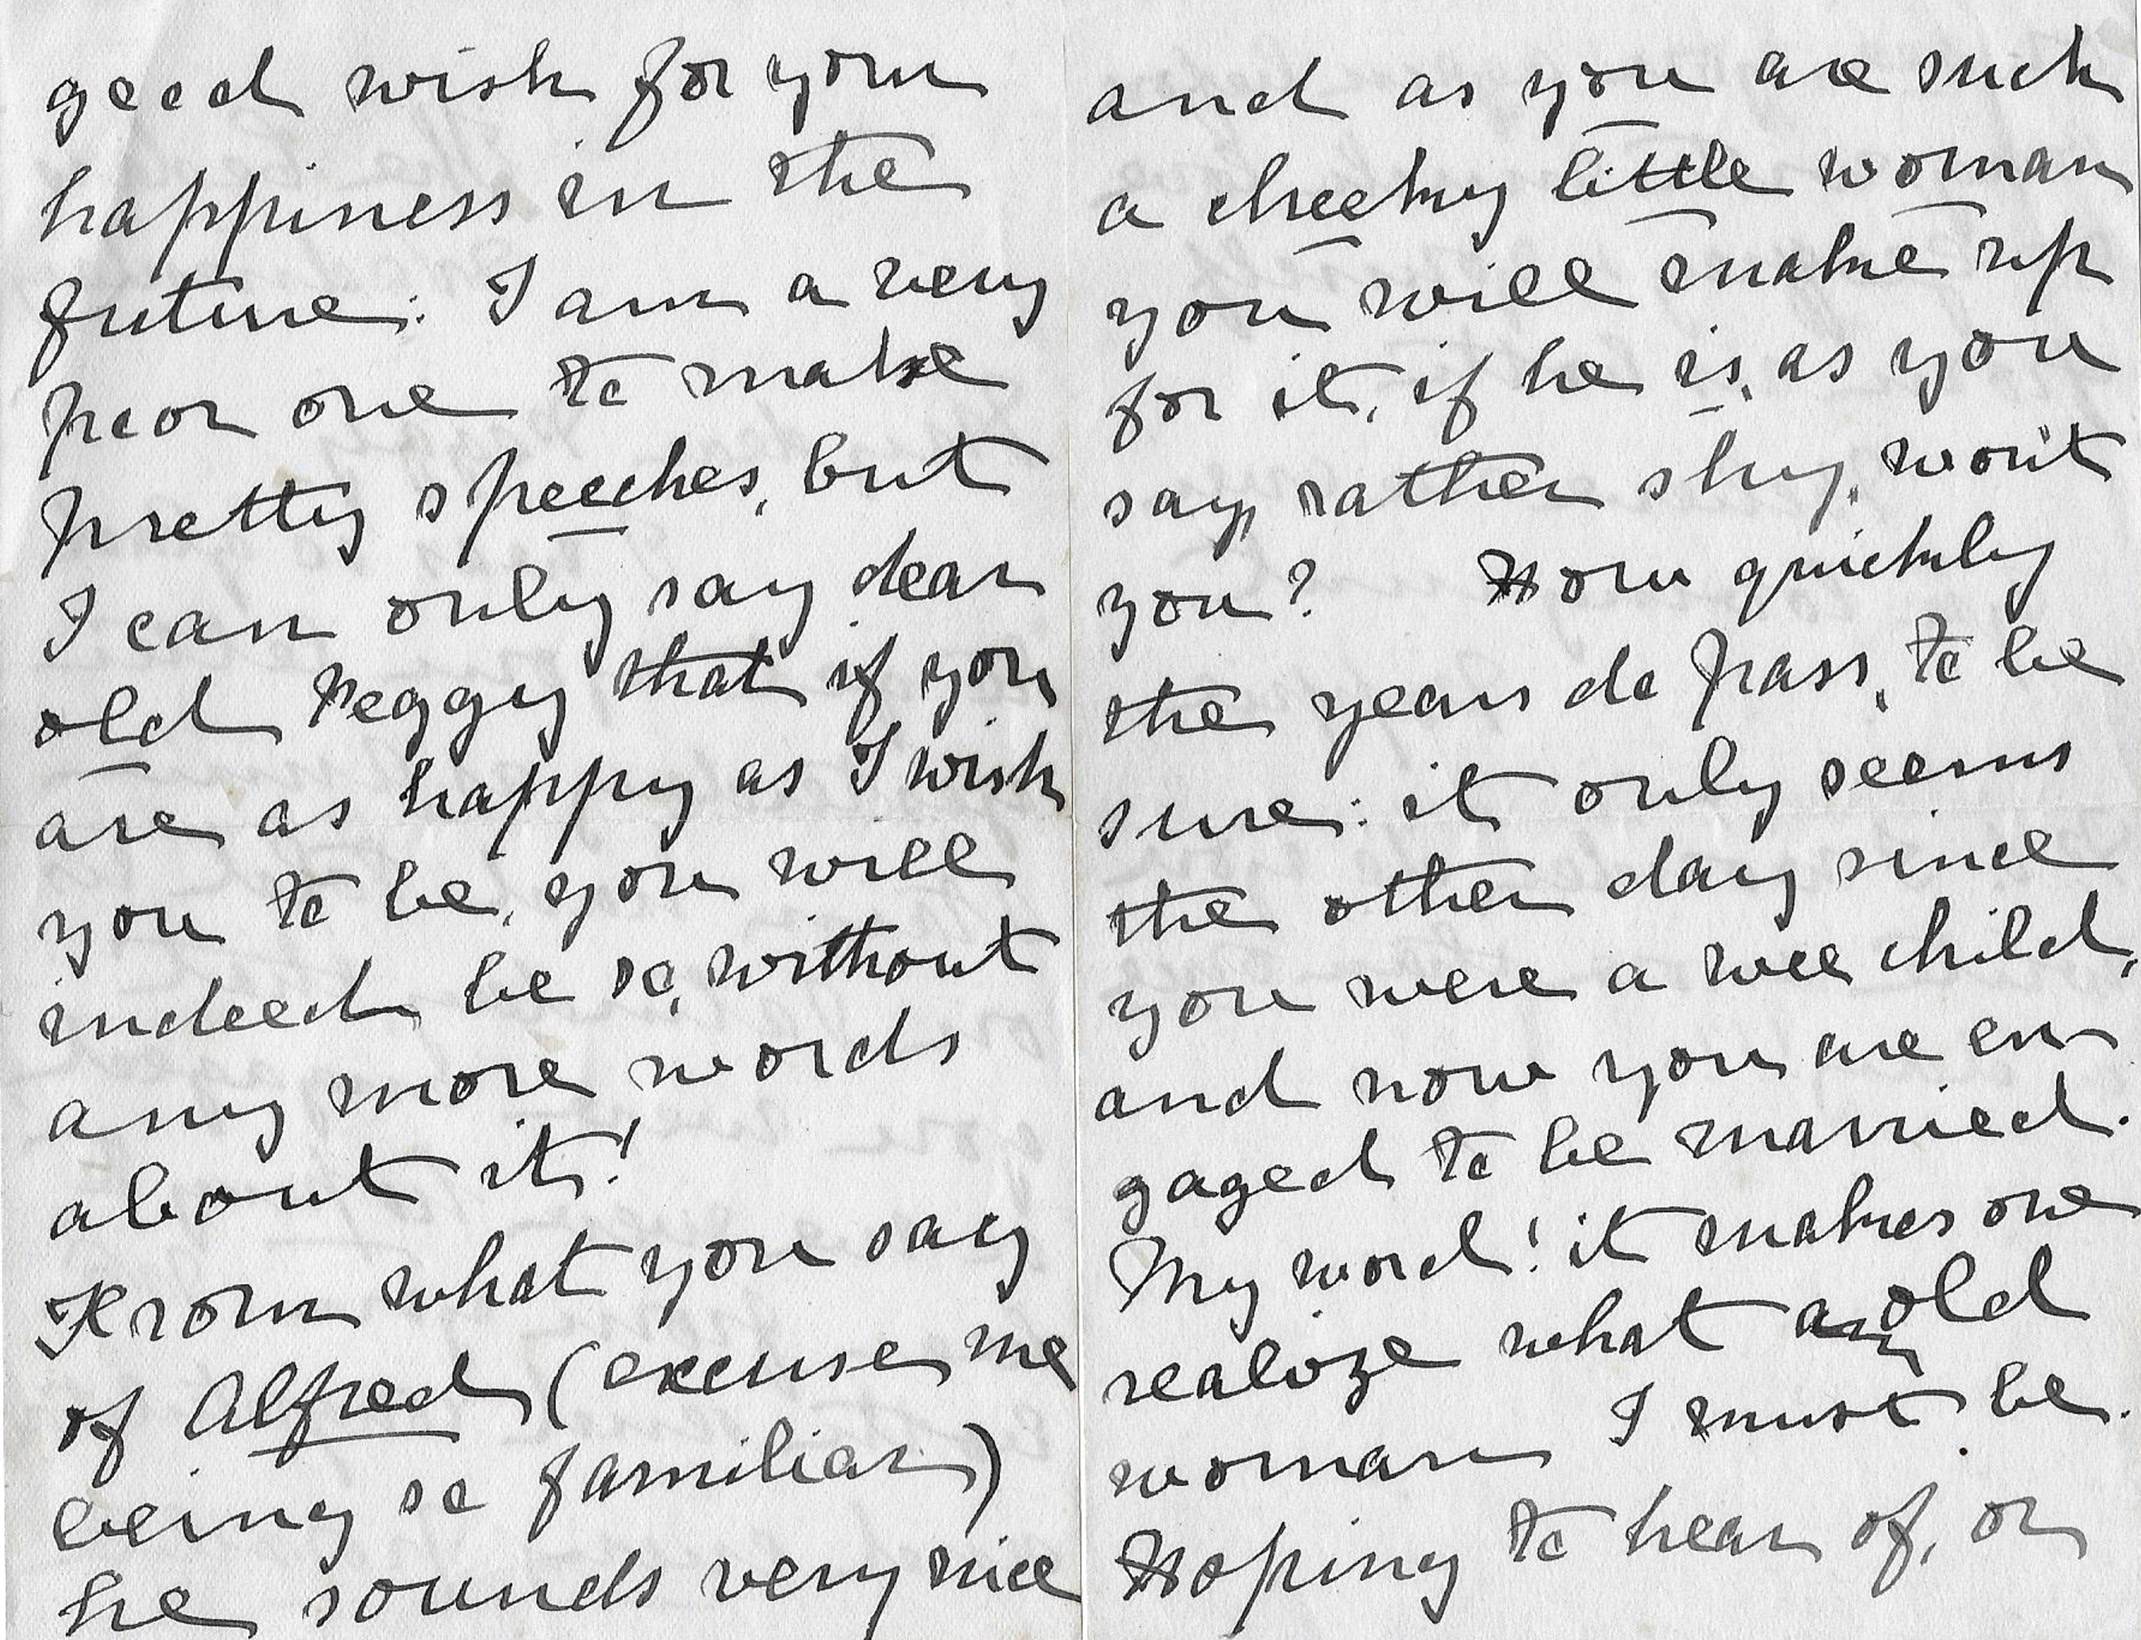 good wish for your
happiness in the
future: I am a very
poor one to make
pretty speeches, but
I can only say dear
old Peggy that if you
are as happy as I wish
you to be, you will
indeed be so, without
any more words
about it!
From what you say
of Alfred (excuse me
being so familiar)
he sounds very nice
and as you are such
a cheeky little woman
you will make up
for it, if he is, as you
say, rather shy, won't
you? How quickly
the years do pass, to be
sure: it only seems
the other day since
you were a wee child,
and now you are en
gaged to be married.
My word! it makes one
realize what an old
woman I must be.
Hoping to hear of, or